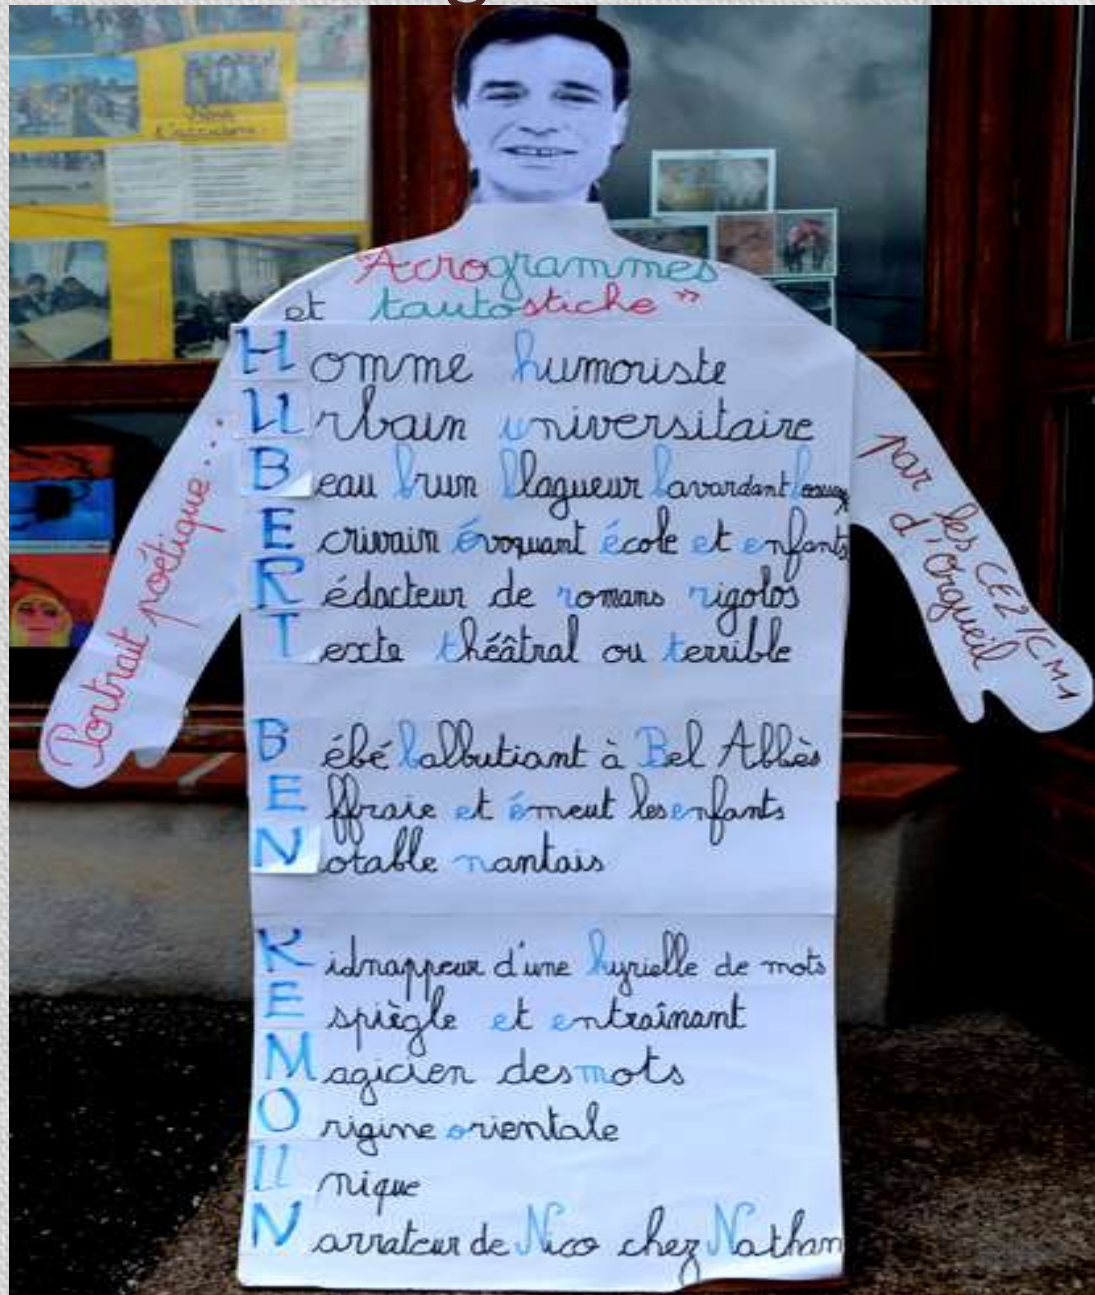 "Acrogrammes
et tautostiche"
Portrait poétique...
par les CE2/CM1
d'orgueil
Homme humoriste
Urbain universitaire
Beau brun blagueur bavardant
Ecrivain évoquant école et enfants
Rédacteur de romans rigolos
Texte théâtral ou terrible
Bébé balbutiant à Bel Abbès
Effraie et émeut les enfants
Notable nantais
Kidnappeur d'une kyrielle de mots
Espiègle et entraînant
Magicien des mots
Origine orientale
Unique
Narrateur de Nico chez Nathan